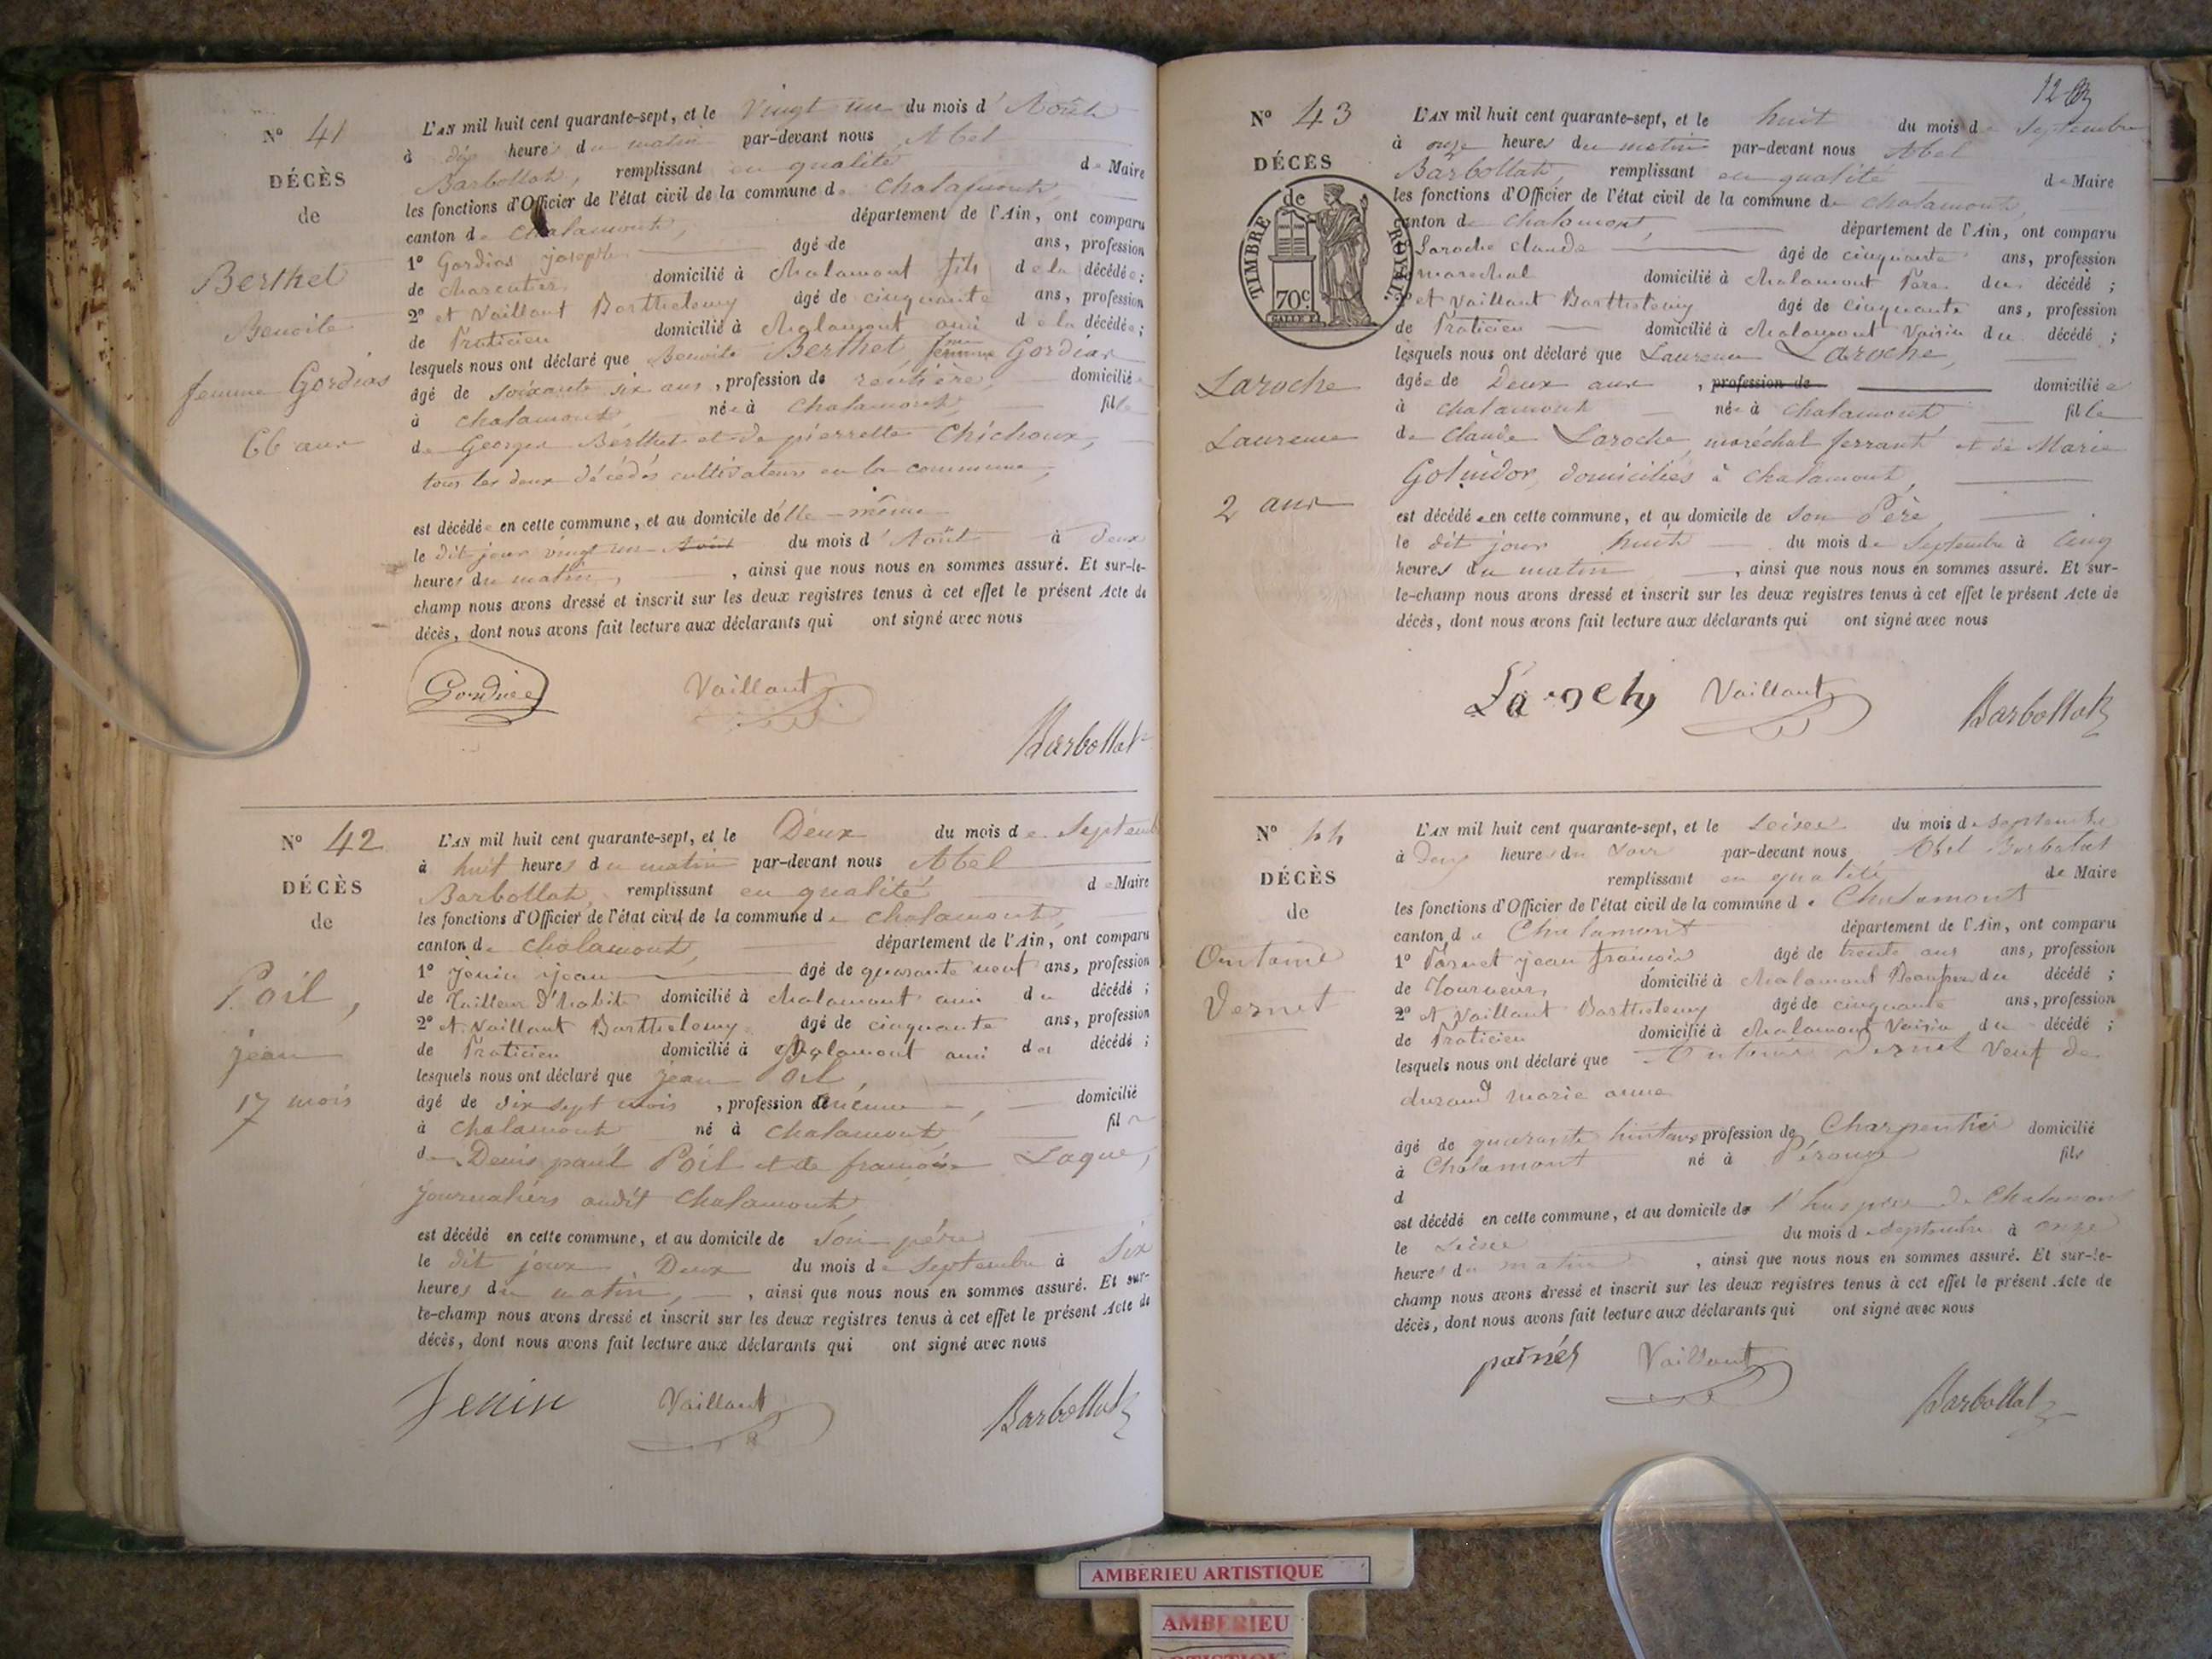 N° 41
DÉCÈS
de
Berthet
Benoite
femme Gordias
66 ans
L'AN mil huit cent quarante-sept, et le Vingt un du mois d'Août
à dix heures du matin par-devant nous Abel
Barbollat, remplissant en qualité de Maire
les fonctions d'Officier de l'état civil de la commune de Chalamont,
canton de Chalamont, département de l'Ain, ont comparu
1° Gordias joseph âgé de ans, profession
de charcutier domicilié à Chalamont fils de la décédée ;
2° et Vaillant Barthelemy âgé de cinquante ans, profession
de Praticien domicilié à Chalamont ami de la décédée ;
lesquels nous ont déclaré que Benoite Berthet femme Gordias
âgé de soixante six ans, profession de rentière, domiciliée
à chalamont née à Chalamont, fille
de Georges Berthet et de pierrette Chichoux,
tous les deux décédés cultivateurs en la commune,
est décédée en cette commune, et au domicile d'elle-même
le dit jour vingt un Août du mois d'Août à Deux
heures du matin, , ainsi que nous nous en sommes assuré. Et sur-le-
champ nous avons dressé et inscrit sur les deux registres tenus à cet effet le présent Acte de
décès, dont nous avons fait lecture aux déclarants qui ont signé avec nous
Vaillant
Barbollat
N° 42
DÉCÈS
de
Poil,
jean
17 mois
L'AN mil huit cent quarante-sept, et le Deux du mois de Septemb
à huit heures du matin par-devant nous Abel
Barbollat, remplissant en qualité de Maire
les fonctions d'Officier de l'état civil de la commune de Chalamont,
canton de Chalamont, département de l'Ain, ont comparu
1° Jenin jean âgé de quarante neuf ans, profession
de Tailleur d'habits domicilié à Chalamont ami du décédé ;
2° et Vaillant Barthelemy âgé de cinquante ans, profession
de Praticien domicilié à Chalamont ami du décédé ;
lesquels nous ont déclaré que jean Poil,
âgé de dix sept mois, profession aucune, domicilié
à Chalamont né à Chalamont, fils
de Denis paul Poil et de françoise Laque,
journaliers audit Chalamont
est décédé en cette commune, et au domicile de Son père
le dit jour Deux du mois de Septembre à Six
heures du matin, , ainsi que nous nous en sommes assuré. Et sur-
le-champ nous avons dressé et inscrit sur les deux registres tenus à cet effet le présent Acte de
décès, dont nous avons fait lecture aux déclarants qui ont signé avec nous
Jenin Vaillant Barbollat
12
N° 43
DÉCÈS
de
TIMBRE ROYAL
70c
Laroche
Laurence
2 ans
L'AN mil huit cent quarante-sept, et le huit du mois de Septembre
à onze heures du matin par-devant nous Abel
Barbollat, remplissant en qualité de Maire
les fonctions d'Officier de l'état civil de la commune de Chalamont,
canton de Chalamont, département de l'Ain, ont comparu
Laroche claude âgé de cinquante ans, profession
marechal domicilié à Chalamont Père du décédé ;
et Vaillant Barthelemy âgé de cinquante ans, profession
de Praticien domicilié à Chalamont Voisin du décédé ;
lesquels nous ont déclaré que Laurence Laroche,
âgée de Deux ans, profession de domiciliée
à chalamont née à chalamont fille
de Claude Laroche, maréchal ferrant et de Marie
domiciliés à Chalamont,
est décédée en cette commune, et au domicile de son Père
le dit jour huit du mois de Septembre à Cinq
heures du matin, ainsi que nous nous en sommes assuré. Et sur-
le-champ nous avons dressé et inscrit sur les deux registres tenus à cet effet le présent Acte de
décès, dont nous avons fait lecture aux déclarants qui ont signé avec nous
Vaillant Barbollat
N° 44
DÉCÈS
de
Antoine
Vernet
L'AN mil huit cent quarante-sept, et le Seize du mois de Septembre
à Deux heures du Soir par-devant nous Abel Barbolat
remplissant en qualité de Maire
les fonctions d'Officier de l'état civil de la commune de Chalamont
canton de Chalamont département de l'Ain, ont comparu
1° jean françois âgé de trente ans ans, profession
de Tourneur domicilié à Chalamont du décédé ;
2° et Vaillant Barthelemy âgé de cinquante ans, profession
de Praticien domicilié à Chalamont Voisin du décédé ;
lesquels nous ont déclaré que Antoine Vernet Veuf de
durand marie anne
âgé de quarante huit ans profession de Charpentier domicilié
à Chalamont né à Pérouge fils
d
est décédé en cette commune, et au domicile de l'hospice de Chalamont
le Seize du mois de Septembre à onze
heures du matin, ainsi que nous nous en sommes assuré. Et sur-le-
champ nous avons dressé et inscrit sur les deux registres tenus à cet effet le présent Acte de
décès, dont nous avons fait lecture aux déclarants qui ont signé avec nous
Vaillant
Barbollat
AMBERIEU ARTISTIQUE
AMBERIEU
ARTISTIQUE